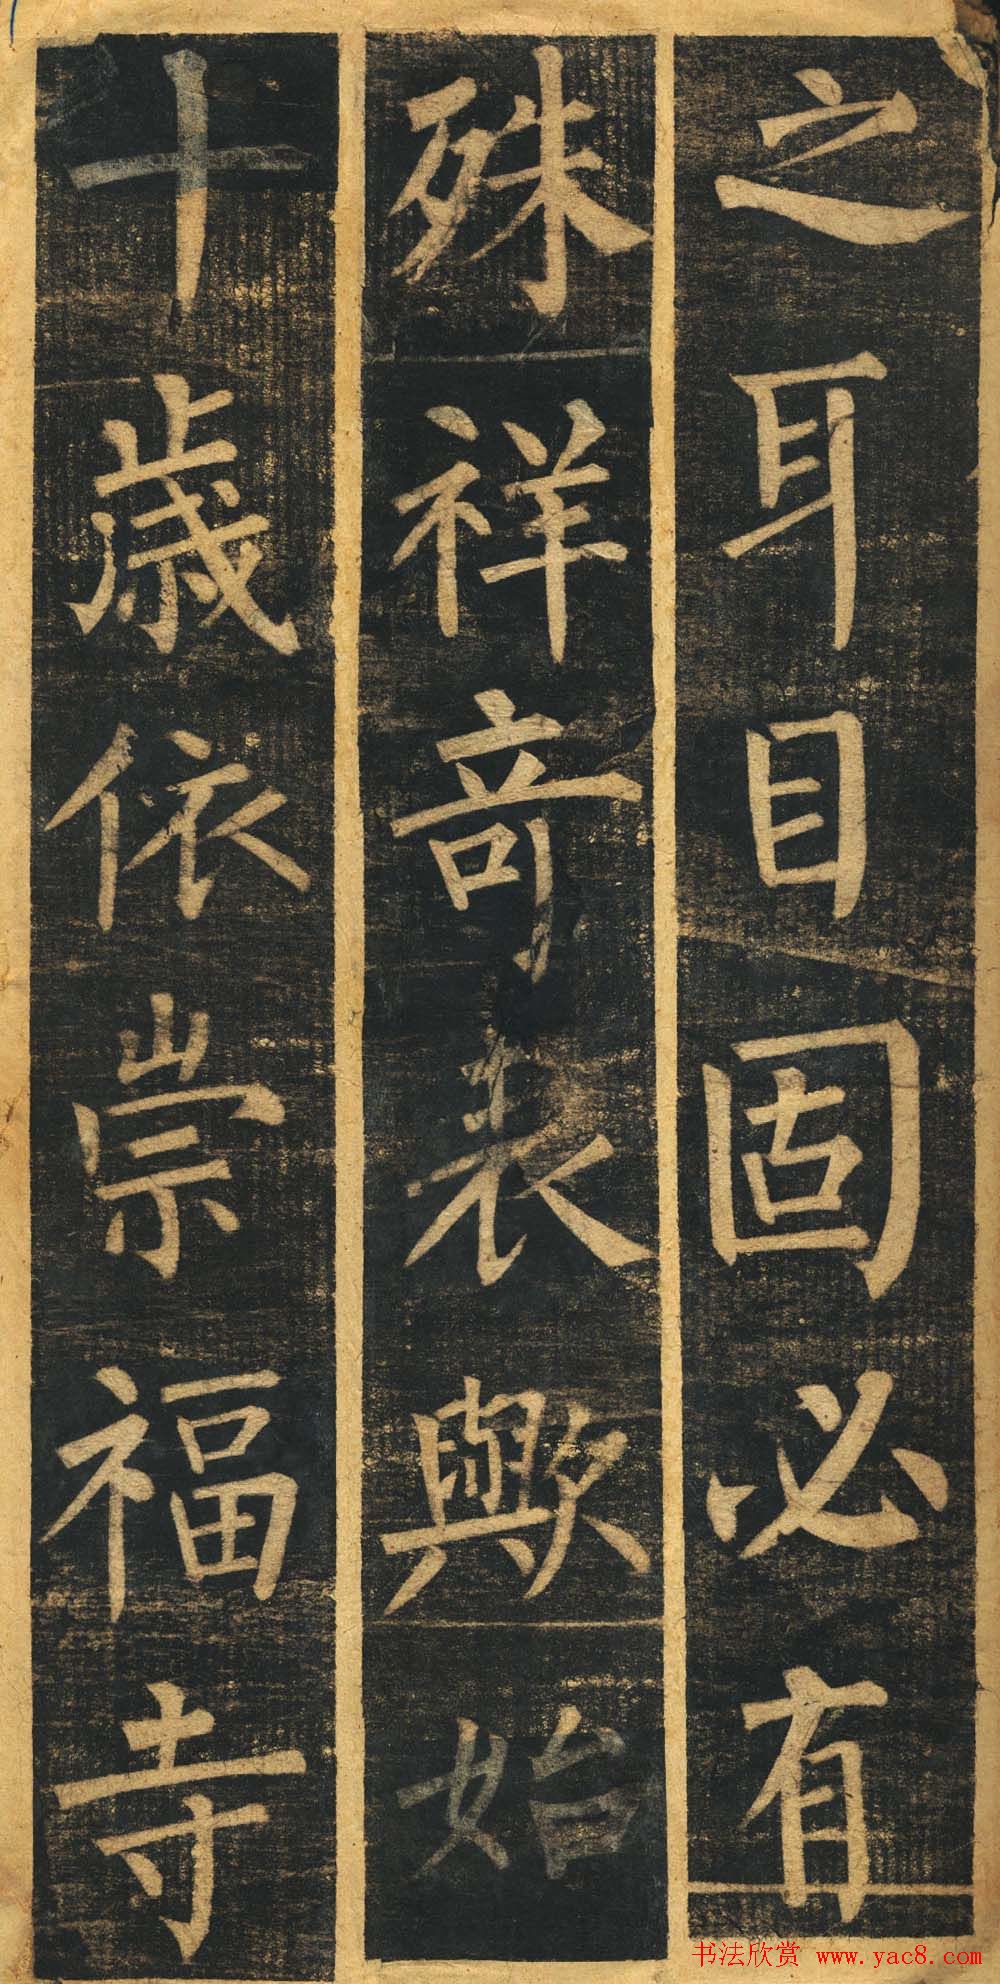 之耳目固必有
殊祥奇表歟始
十歲依崇福寺
书法欣赏 www.yac8.com